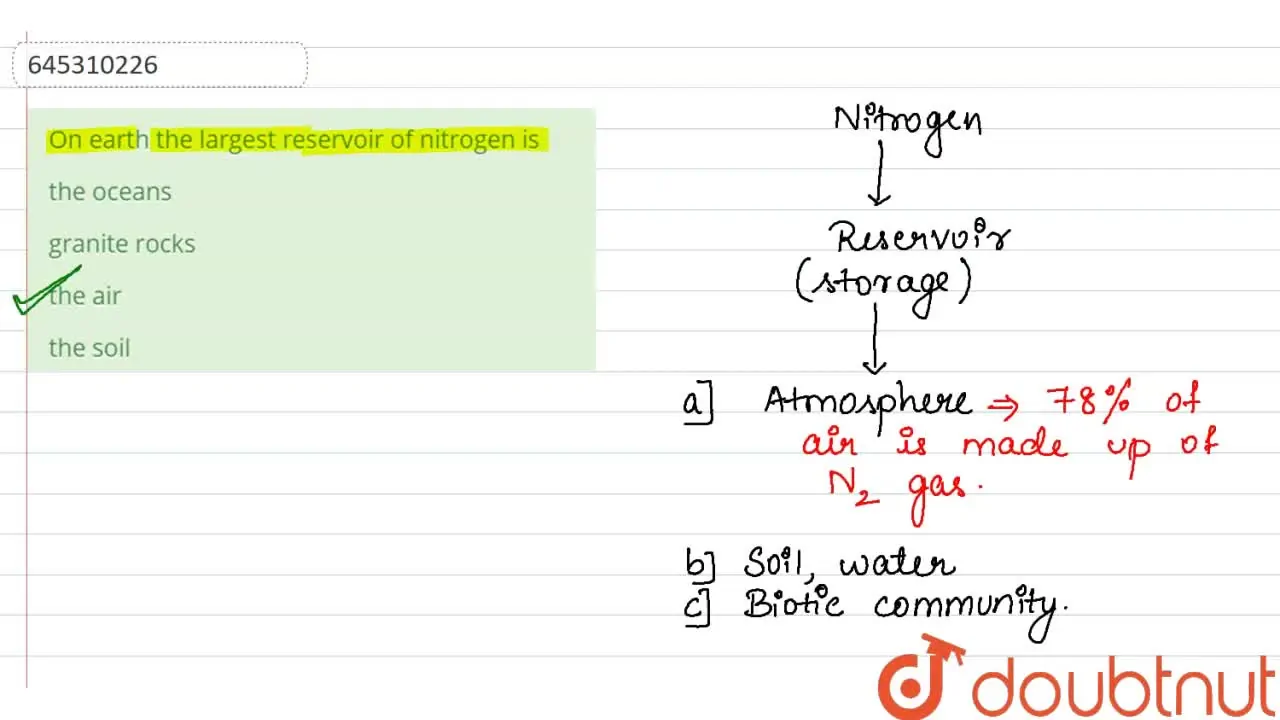 645310226
On earth the largest reservoir of nitrogen is
the oceans
granite rocks
the air
the soil
Nitrogen
Reservoir
(storage)
a] Atmosphere ⇒ 78% of
air is made up of
N₂ gas.
b] Soil, water
c] Biotic community.
doubtnut